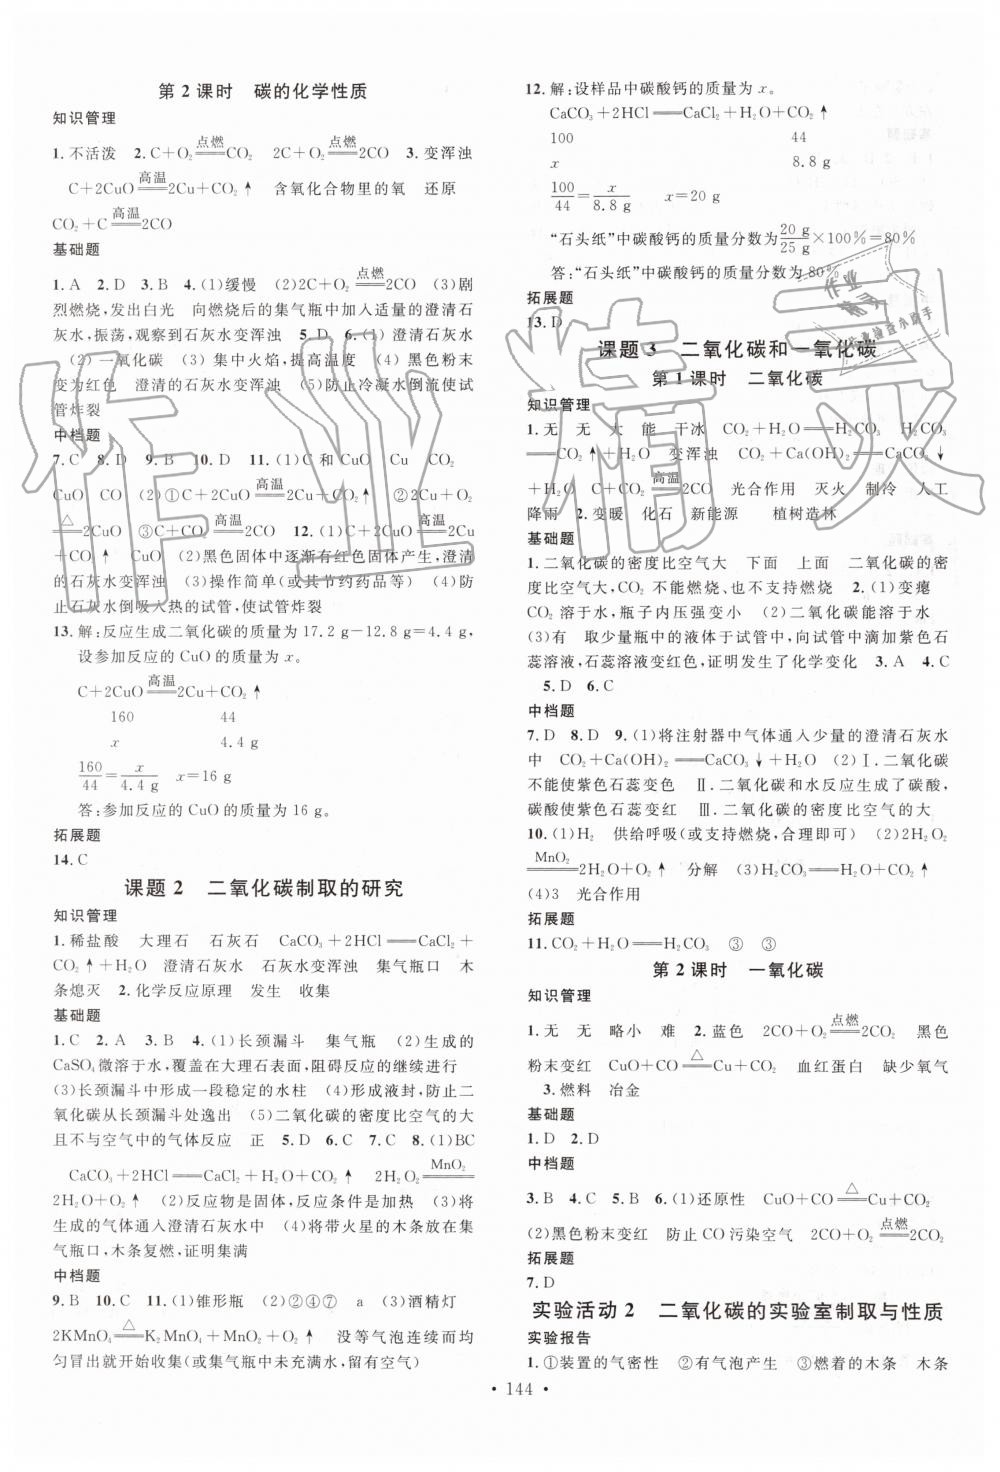 第 2 课时　碳的化学性质
知识管理
1. 不活泼　2. C+O₂ ══点燃══ CO₂　2C+O₂ ══点燃══ 2CO　3. 变浑浊
C+2CuO ══高温══ 2Cu+CO₂↑　含氧化合物里的氧　还原
CO₂+C ══高温══ 2CO
基础题
1. A　2. D　3. B　4. (1)缓慢　(2)2C+O₂ ══点燃══ 2CO　(3)剧
烈燃烧,发出白光　向燃烧后的集气瓶中加入适量的澄清石
灰水,振荡,观察到石灰水变浑浊　5. D　6. (1) 澄清石灰水
(2) 一氧化碳　(3) 集中火焰,提高温度　(4) 黑色粉末
变为红色　澄清的石灰水变浑浊　(5)防止冷凝水倒流使试
管炸裂
中档题
7. C　8. D　9. B　10. D　11. (1)C 和 CuO　Cu　CO₂
CuO　CO　(2)①C+2CuO ══高温══ 2Cu+CO₂↑　②2Cu+O₂
══△══ 2CuO　③C+CO₂ ══高温══ 2CO　12. (1)C+2CuO ══高温══ 2Cu
+CO₂↑　(2)黑色固体中逐渐有红色固体产生,澄清
的石灰水变浑浊　(3)操作简单(或其节约药品等)　(4)防
止石灰水倒吸入热的试管,使试管炸裂
13. 解:反应生成二氧化碳的质量为 17.2 g−12.8 g=4.4 g,
设参加反应的 CuO 的质量为 x。
C+2CuO ══高温══ 2Cu+CO₂↑
160　44
x　4.4 g
160/44=x/4.4 g　x=16 g
答:参加反应的 CuO 的质量为 16 g。
拓展题
14. C
课题 2　二氧化碳制取的研究
知识管理
1. 稀盐酸　大理石　石灰石　CaCO₃+2HCl══CaCl₂+
CO₂↑+H₂O　澄清石灰水　石灰水变浑浊　集气瓶口　木
条熄灭　2. 化学反应原理　发生　收集
基础题
1. C　2. A　3. B　4. (1)长颈漏斗　集气瓶　(2)生成的
CaSO₄微溶于水,覆盖在大理石表面,阻碍反应的继续进行
(3)长颈漏斗中形成一段稳定的水柱　(4)形成液封,防止二
氧化碳从长颈漏斗处逸出　(5)二氧化碳的密度比空气的大
且不与空气中的气体反应　正　5. D　6. C　7. C　8. (1)BC
CaCO₃+2HCl══CaCl₂+H₂O+CO₂↑　2H₂O₂ ══MnO₂══
2H₂O+O₂↑　(2)反应物是固体,反应条件是加热　(3)将
生成的气体通入澄清石灰水中　(4)将带火星的木条放在集
气瓶口,木条复燃,证明集满
中档题
9. B　10. C　11. (1)锥形瓶　(2)②④⑦　a　(3)酒精灯
2KMnO₄ ══△══ K₂MnO₄+MnO₂+O₂↑　没等气泡连续而均
匀冒出就开始收集(或集气瓶中未充满水,留有空气)
12. 解:设样品中碳酸钙的质量为 x。
CaCO₃+2HCl══CaCl₂+H₂O+CO₂↑
100　44
x　8.8 g
100/44=x/8.8 g　x=20 g
“石头纸”中碳酸钙的质量分数为20 g/25 g×100%=80%
答:“石头纸”中碳酸钙的质量分数为80%。
拓展题
13. D
课题 3　二氧化碳和一氧化碳
第 1 课时　二氧化碳
知识管理
1. 无　无　大　能　干冰　CO₂+H₂O══H₂CO₃　H₂CO₃
══CO₂↑+H₂O　变浑浊　CO₂+Ca(OH)₂══CaCO₃↓
+H₂O　C+CO₂ ══高温══ 2CO　光合作用　灭火　制冷　人工
降雨　2. 变暖　化石　新能源　植树造林
基础题
1. 二氧化碳的密度比空气大　下面　上面　二氧化碳的密
度比空气大,CO₂ 不能燃烧、也不支持燃烧　2. (1)变瘪
CO₂ 溶于水,瓶子内压强变小　(2)二氧化碳能溶于水
(3)有　取少量瓶中的液体于试管中,向试管中滴加紫色石
蕊溶液,石蕊溶液变红色,证明发生了化学变化　3. A　4. C
5. D　6. C
中档题
7. D　8. D　9. (1)将注射器中气体通入少量的澄清石灰水
中　CO₂+Ca(OH)₂══CaCO₃↓+H₂O　(2)Ⅰ. 二氧化碳
不能使紫色石蕊变色　Ⅱ. 二氧化碳和水反应生成了碳酸,
碳酸使紫色石蕊变红　Ⅲ. 二氧化碳的密度比空气的大
10. (1)H₂　供给呼吸(或支持燃烧,合理即可)　(2)2H₂O₂
══MnO₂══ 2H₂O+O₂↑　分解　(3)H₂CO₃══H₂O+CO₂↑
(4)3　光合作用
拓展题
11. CO₂+H₂O══H₂CO₃　③　③
第 2 课时　一氧化碳
知识管理
1. 无　无　略小　难　2. 蓝色　2CO+O₂ ══点燃══ 2CO₂　黑色
粉末变红　CuO+CO ══△══ Cu+CO₂　血红蛋白　缺少氧气
3. 燃料　冶金
基础题
1. D　2. D
中档题
3. B　4. C　5. B　6. (1)还原性　CuO+CO ══△══ Cu+CO₂
(2)黑色粉末变红　防止 CO 污染空气　2CO+O₂ ══点燃══ 2CO₂
拓展题
7. D
实验活动 2　二氧化碳的实验室制取与性质
实验报告
1. ①装置的气密性　②有气泡产生　③燃着的木条　木条
• 144 •
作业精灵